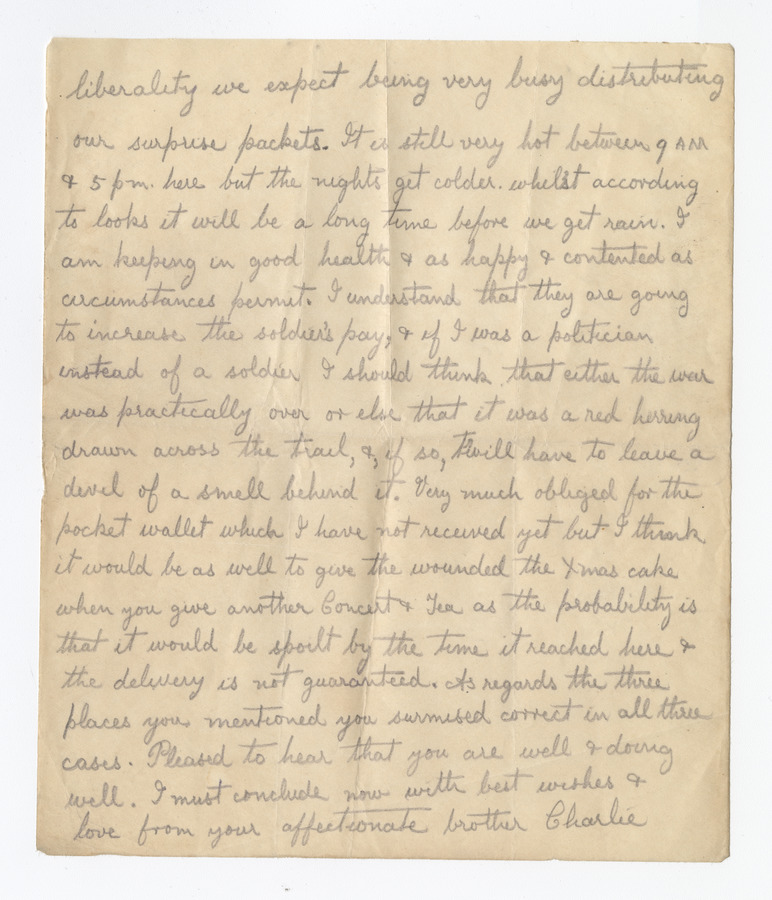 liberality we expect being very busy distributing
our surprise packets. It is still very hot between 9 AM
& 5 pm. here but the nights get colder. whilst according
to looks it will be a long time before we get rain. I
am keeping in good health & as happy & contented as
circumstances permit. I understand that they are going
to increase the soldier's pay, & if I was a politician
instead of a soldier I should think that either the war
was practically over or else that it was a red herring
drawn across the trail, &, if so, will have to leave a
devil of a smell behind it. Very much obliged for the
pocket wallet which I have not received yet but I think
it would be as well to give the wounded the Xmas cake
when you give another Concert & Tea as the probability is
that it would be spoilt by the time it reached here &
the delivery is not guaranteed. As regards the three
places you mentioned you surmised correct in all three
cases. Pleased to hear that you are well & doing
well. I must conclude now with best wishes &
love from your affectionate brother Charlie